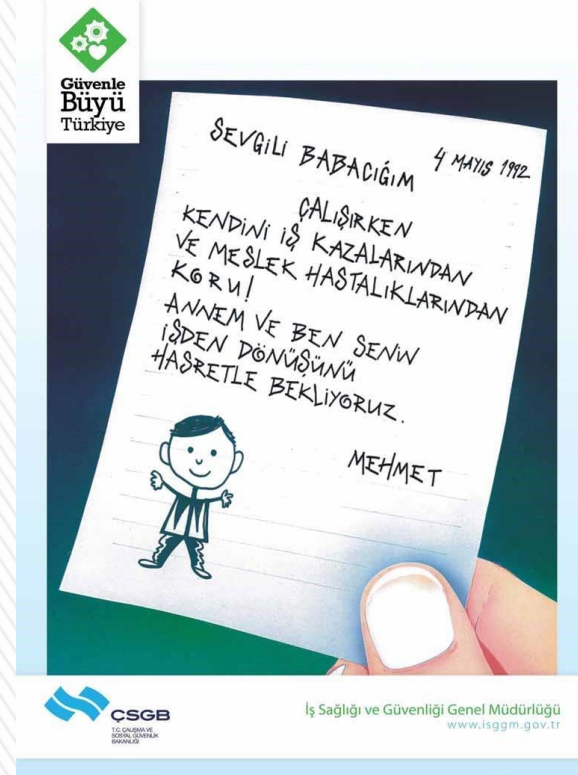 Güvenle
Büyü
Türkiye
SEVGİLİ BABACIĞIM
4 MAYIS 1992
ÇALIŞIRKEN
KENDİNİ İŞ KAZALARINDAN
VE MESLEK HASTALIKLARINDAN
KORU!
ANNEM VE BEN SENİN
İŞDEN DÖNÜŞÜNÜ
HASRETLE BEKLİYORUZ.
MEHMET
ÇSGB
T.C. ÇALIŞMA VE
SOSYAL GÜVENLİK
BAKANLIĞI
İş Sağlığı ve Güvenliği Genel Müdürlüğü
www.isggm.gov.tr